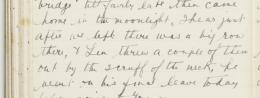 bridge till fairly late then came
home in the moonlight. I hear just
after we left there was a big row
there, & Len threw a couple of them
out by the scruff of the neck. He
went on his final leave today